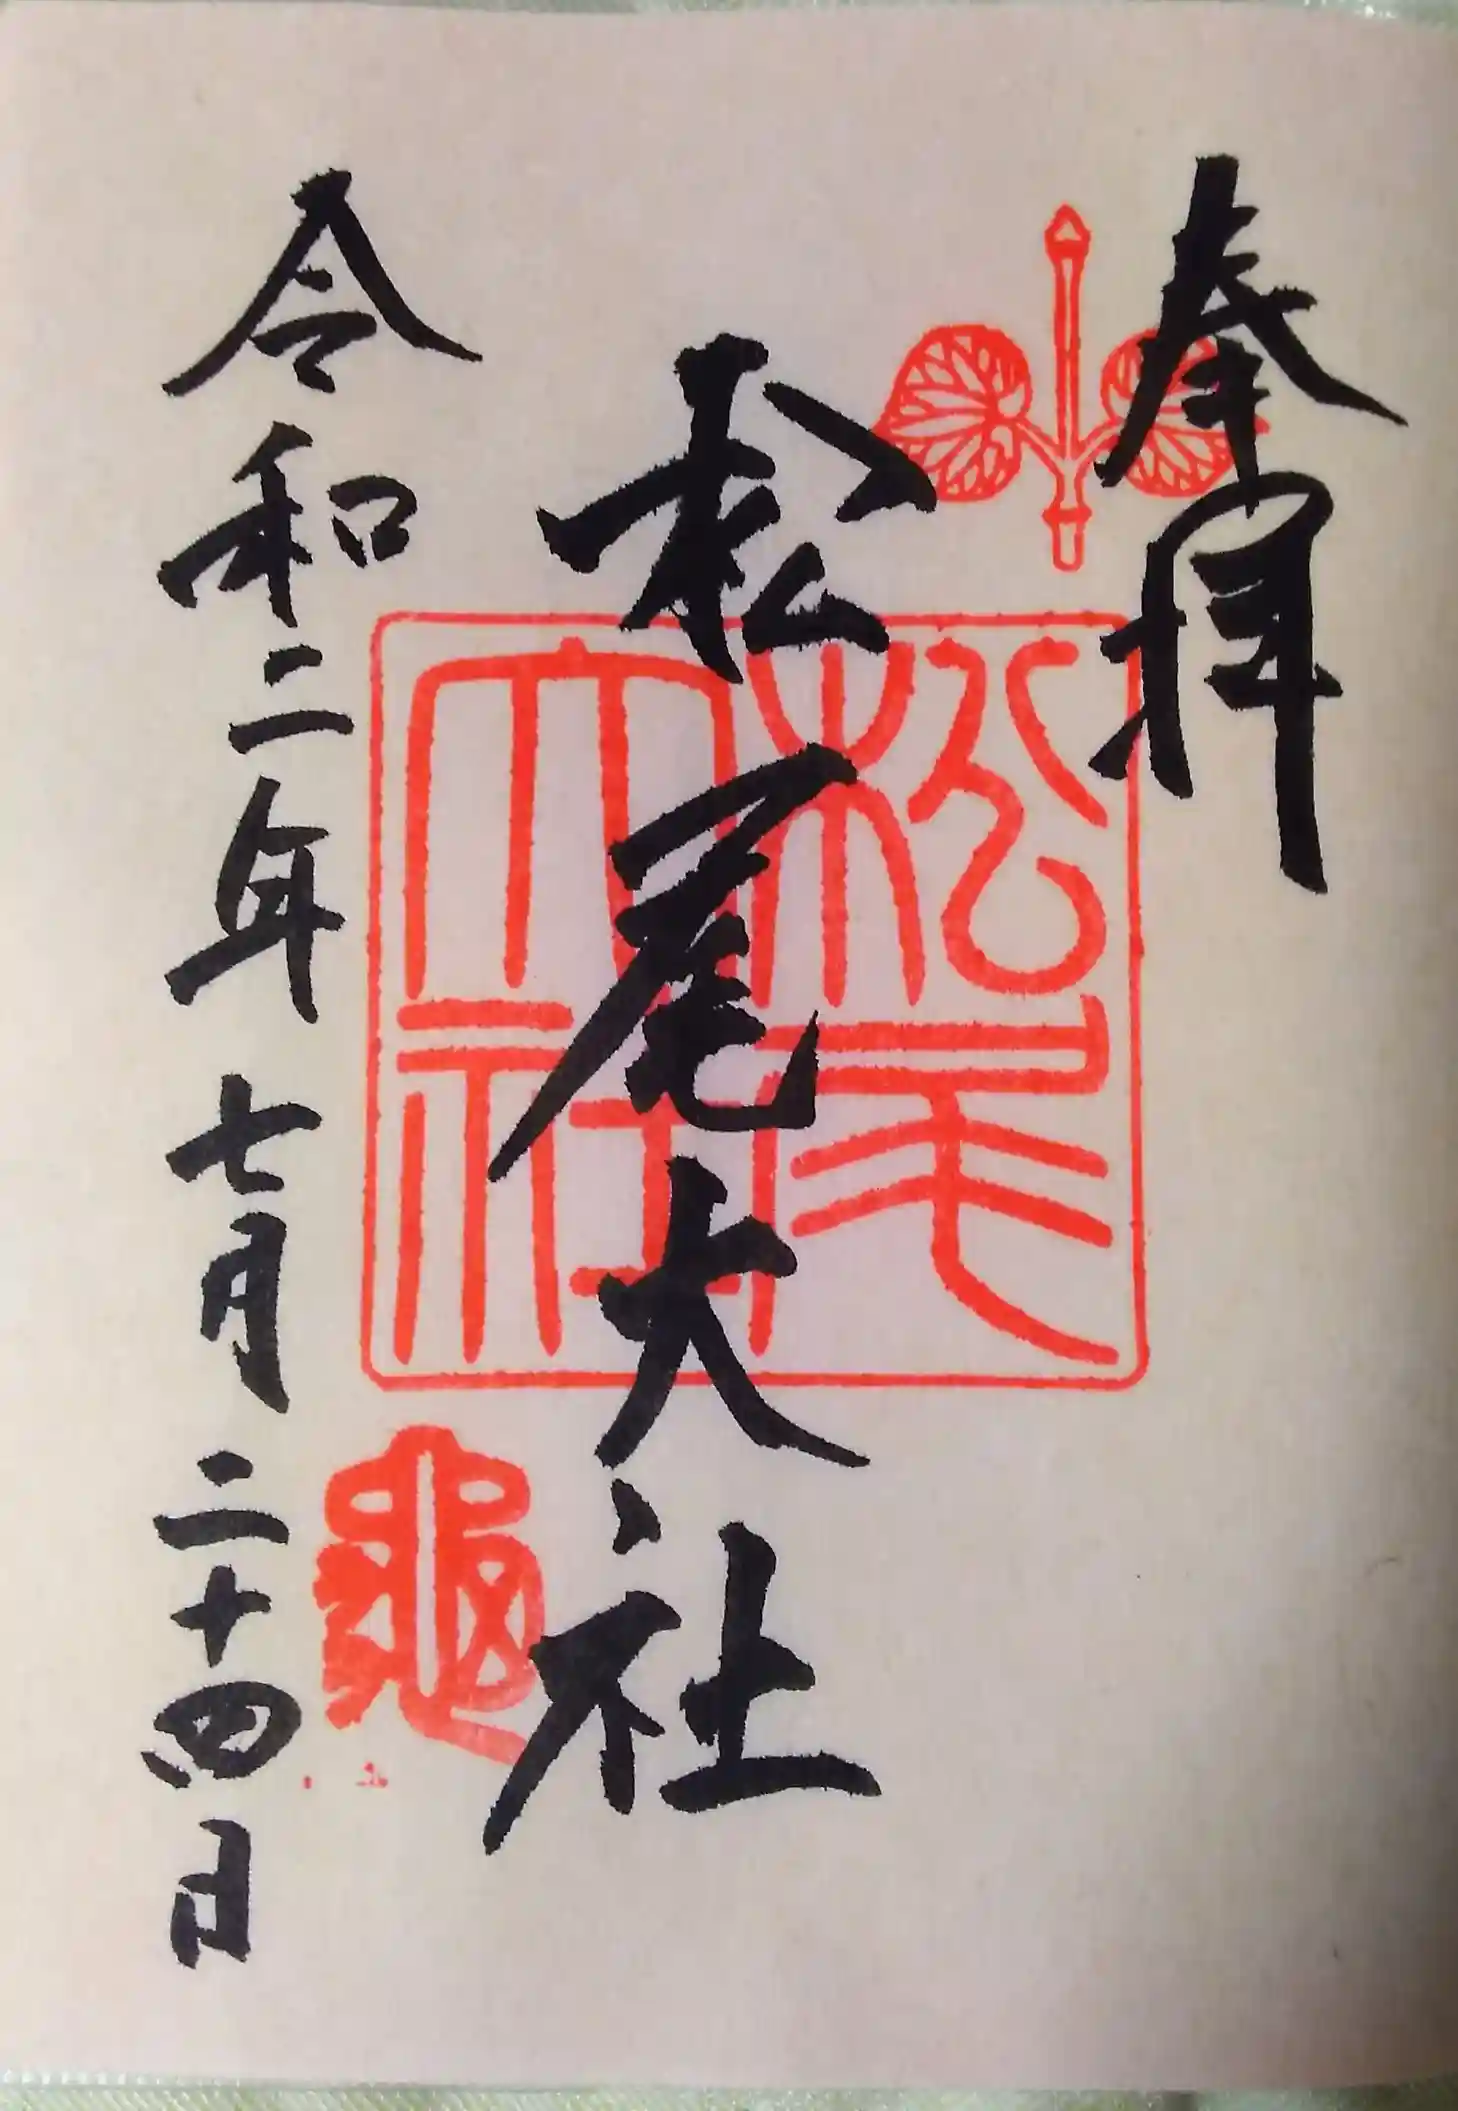 奉拝
松尾大社
松尾大社
令和二年七月二十四日
龜